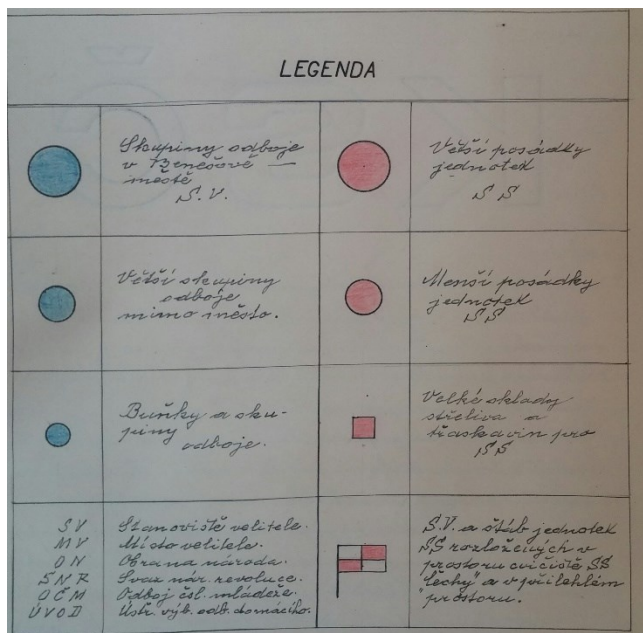 LEGENDA
Skupiny odboje
v Benešově —
městě
S.V.
Větší posádky
jednotek
SS
Větší skupiny
odboje
mimo město.
Menší posádky
jednotek
SS
Buňky a sku-
piny
odboje.
Velké sklady
střeliva a
třaskavin pro
SS
SV Stanoviště velitele.
MV Místo velitele.
ON Obrana národa.
SNR Svaz nár. revoluce.
OČM Odboj čsl. mládeže.
ÚVOD Ústř. výb. odb. domácího.
S.V. a štáb jednotek
SS rozložených v
prostoru cvičiště SS
"Čechy" a v přilehlém
prostoru.